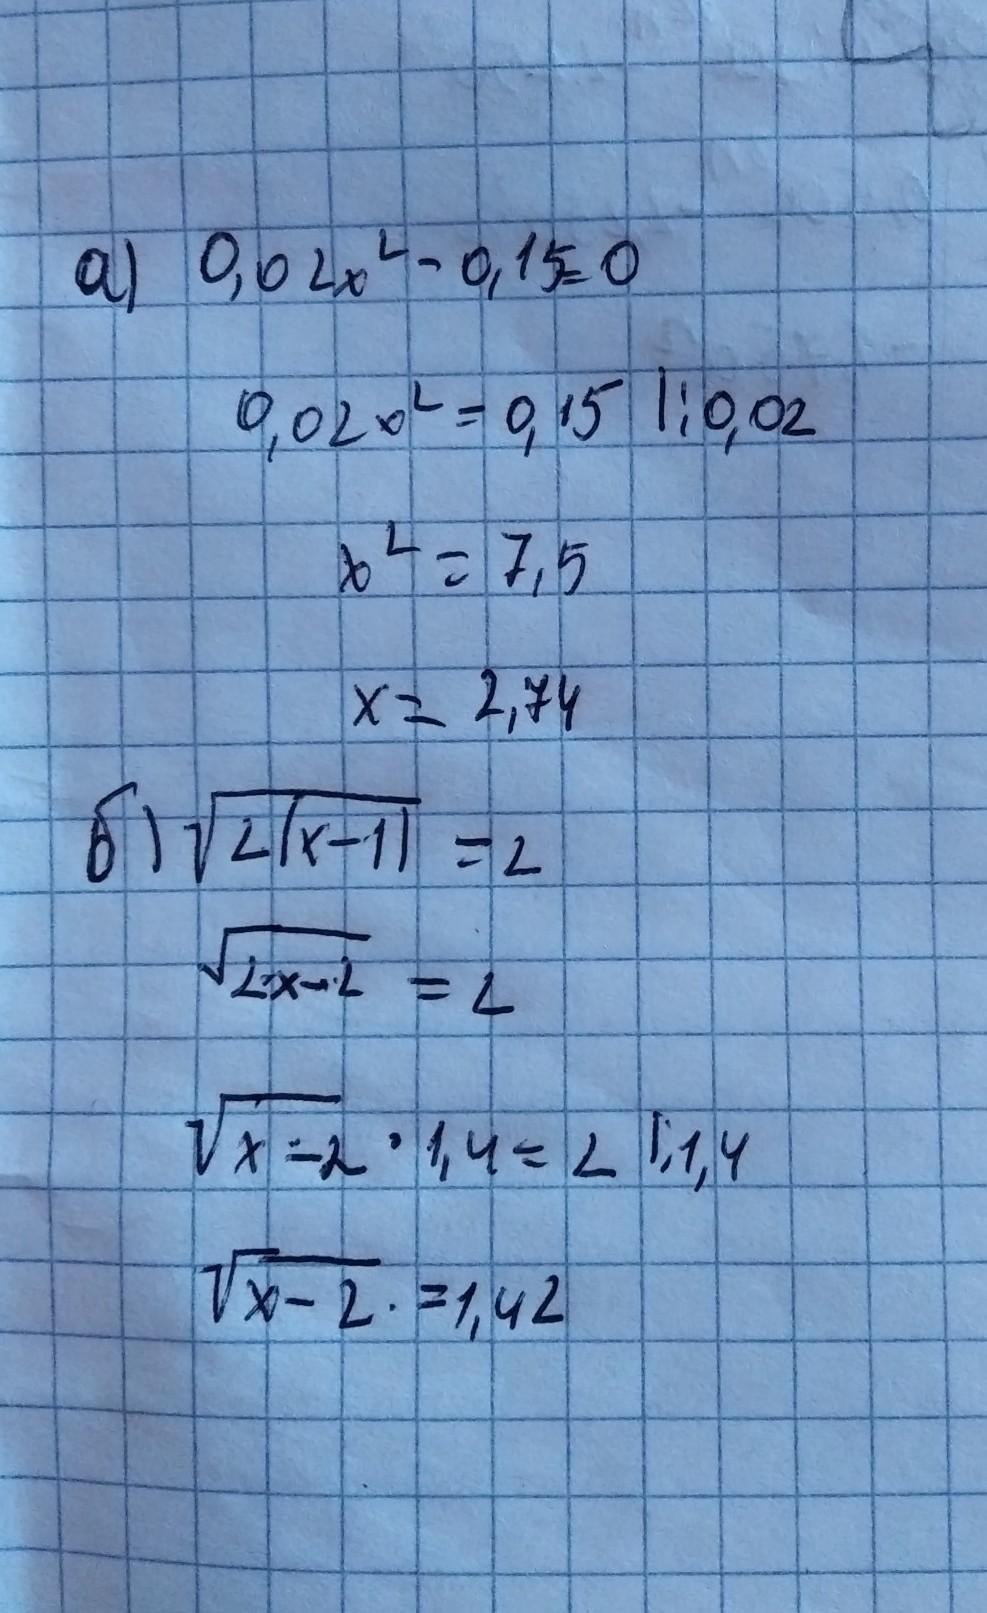 а) 0,02x² - 0,15=0
0,02x² = 0,15 |:0,02
x² = 7,5
x = 2,74
б) √2(x-1) = 2
√2x-2 = 2
√x-2 · 1,4 = 2 |:1,4
√x-2. =1,42